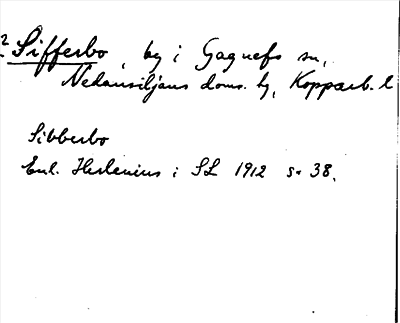 ? Sifferbo, by i Gagnefs sn,
Nedansiljans doms. hg, Kopparb. l
Sibberbo
Enl. Hesslenius i SL 1912 s. 38.